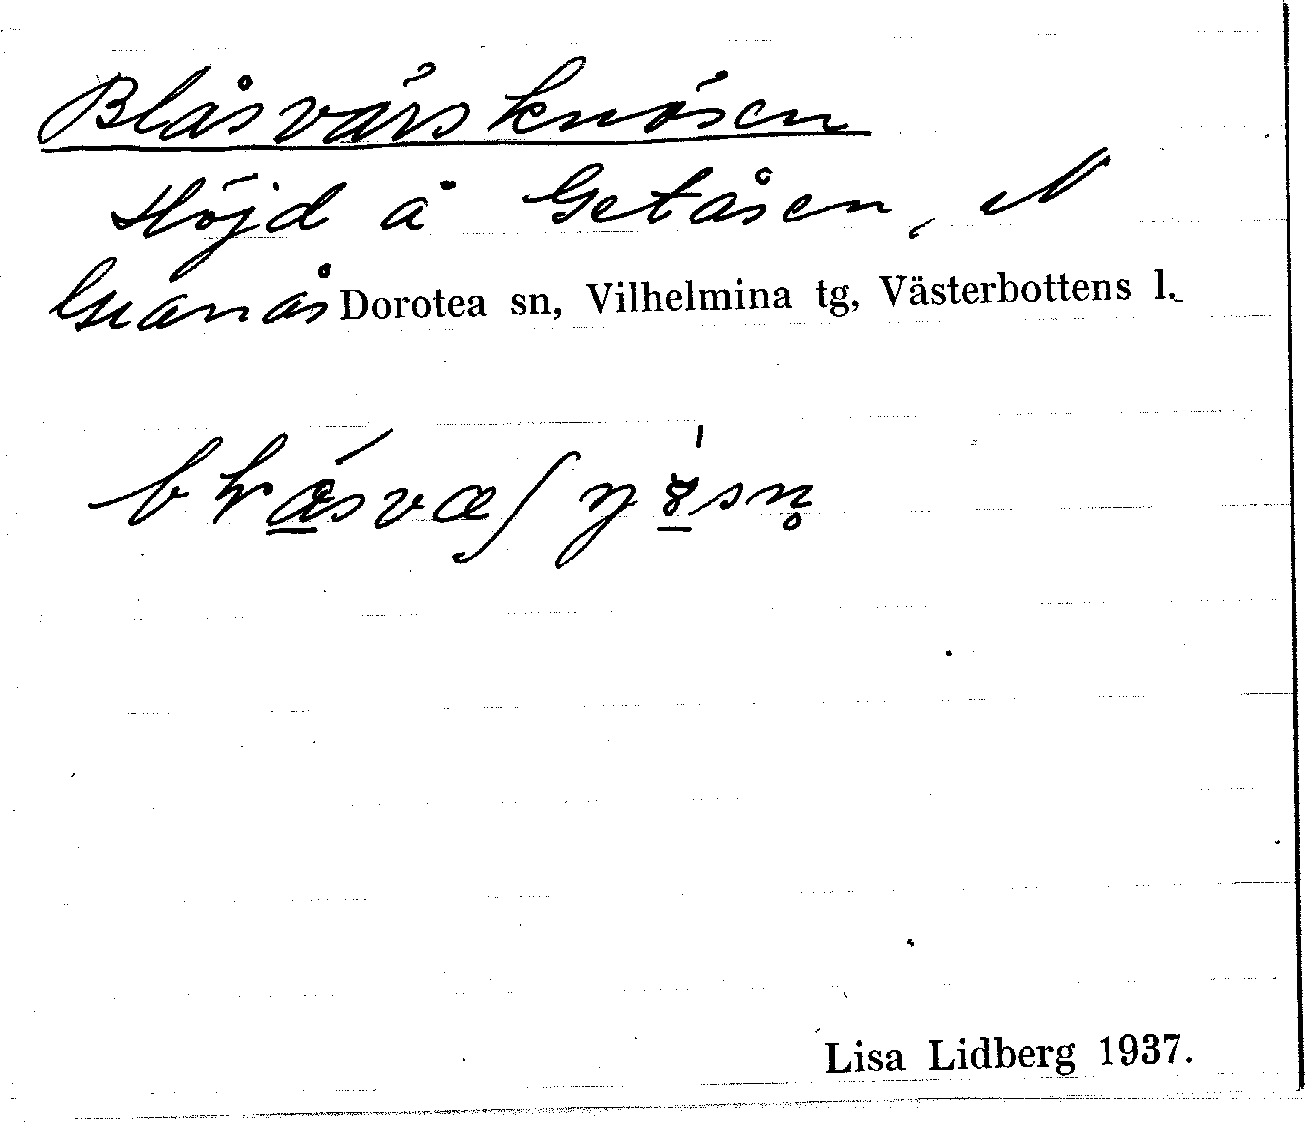 Blåsvärsknösen
Höjd å Getåsen, N
Granås Dorotea sn, Vilhelmina tg, Västerbottens l.
Lisa Lidberg 1937.